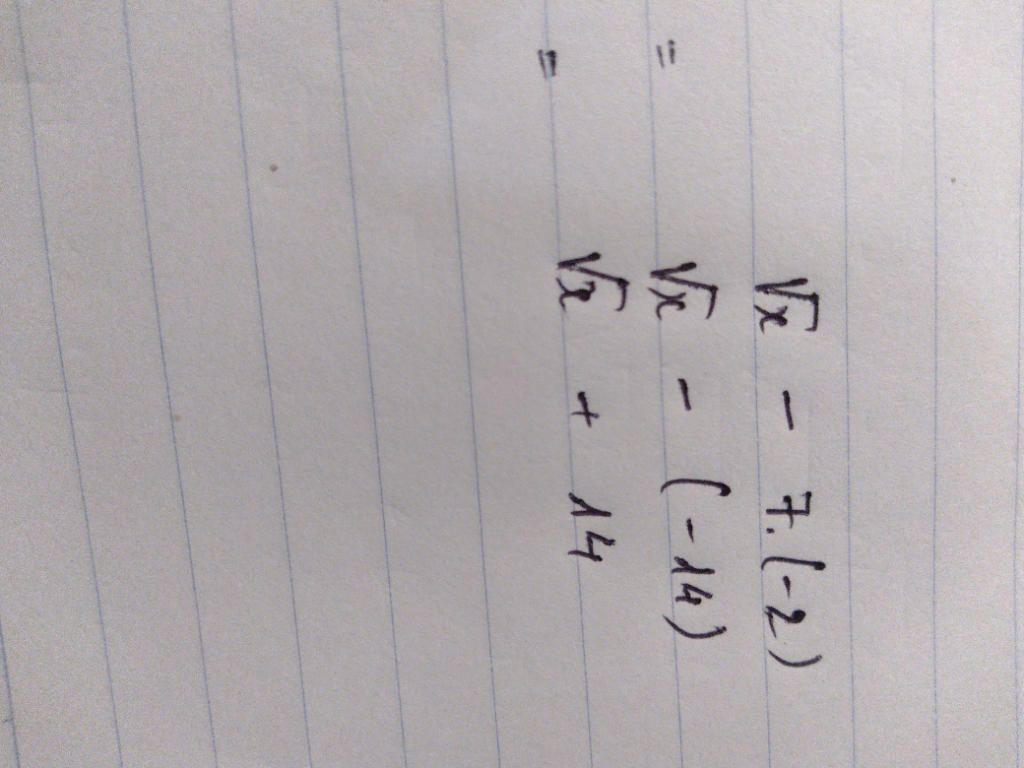 √x - 7.(-2)
= √x - (-14)
= √x + 14